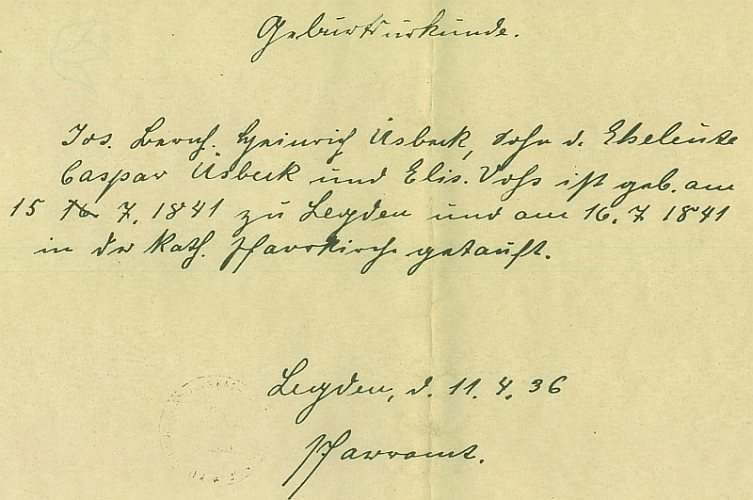 Geburtsurkunde.
Jos. Bernh. Heinrich Üsbeck, Sohn d. Eheleute
Caspar Üsbeck und Elis. Voss ist geb. am
15 16 7. 1841 zu Legden und am 16. 7 1841
in der kath. Pfarrkirche getauft.
Legden, d. 11. 4. 36
Pfarramt.